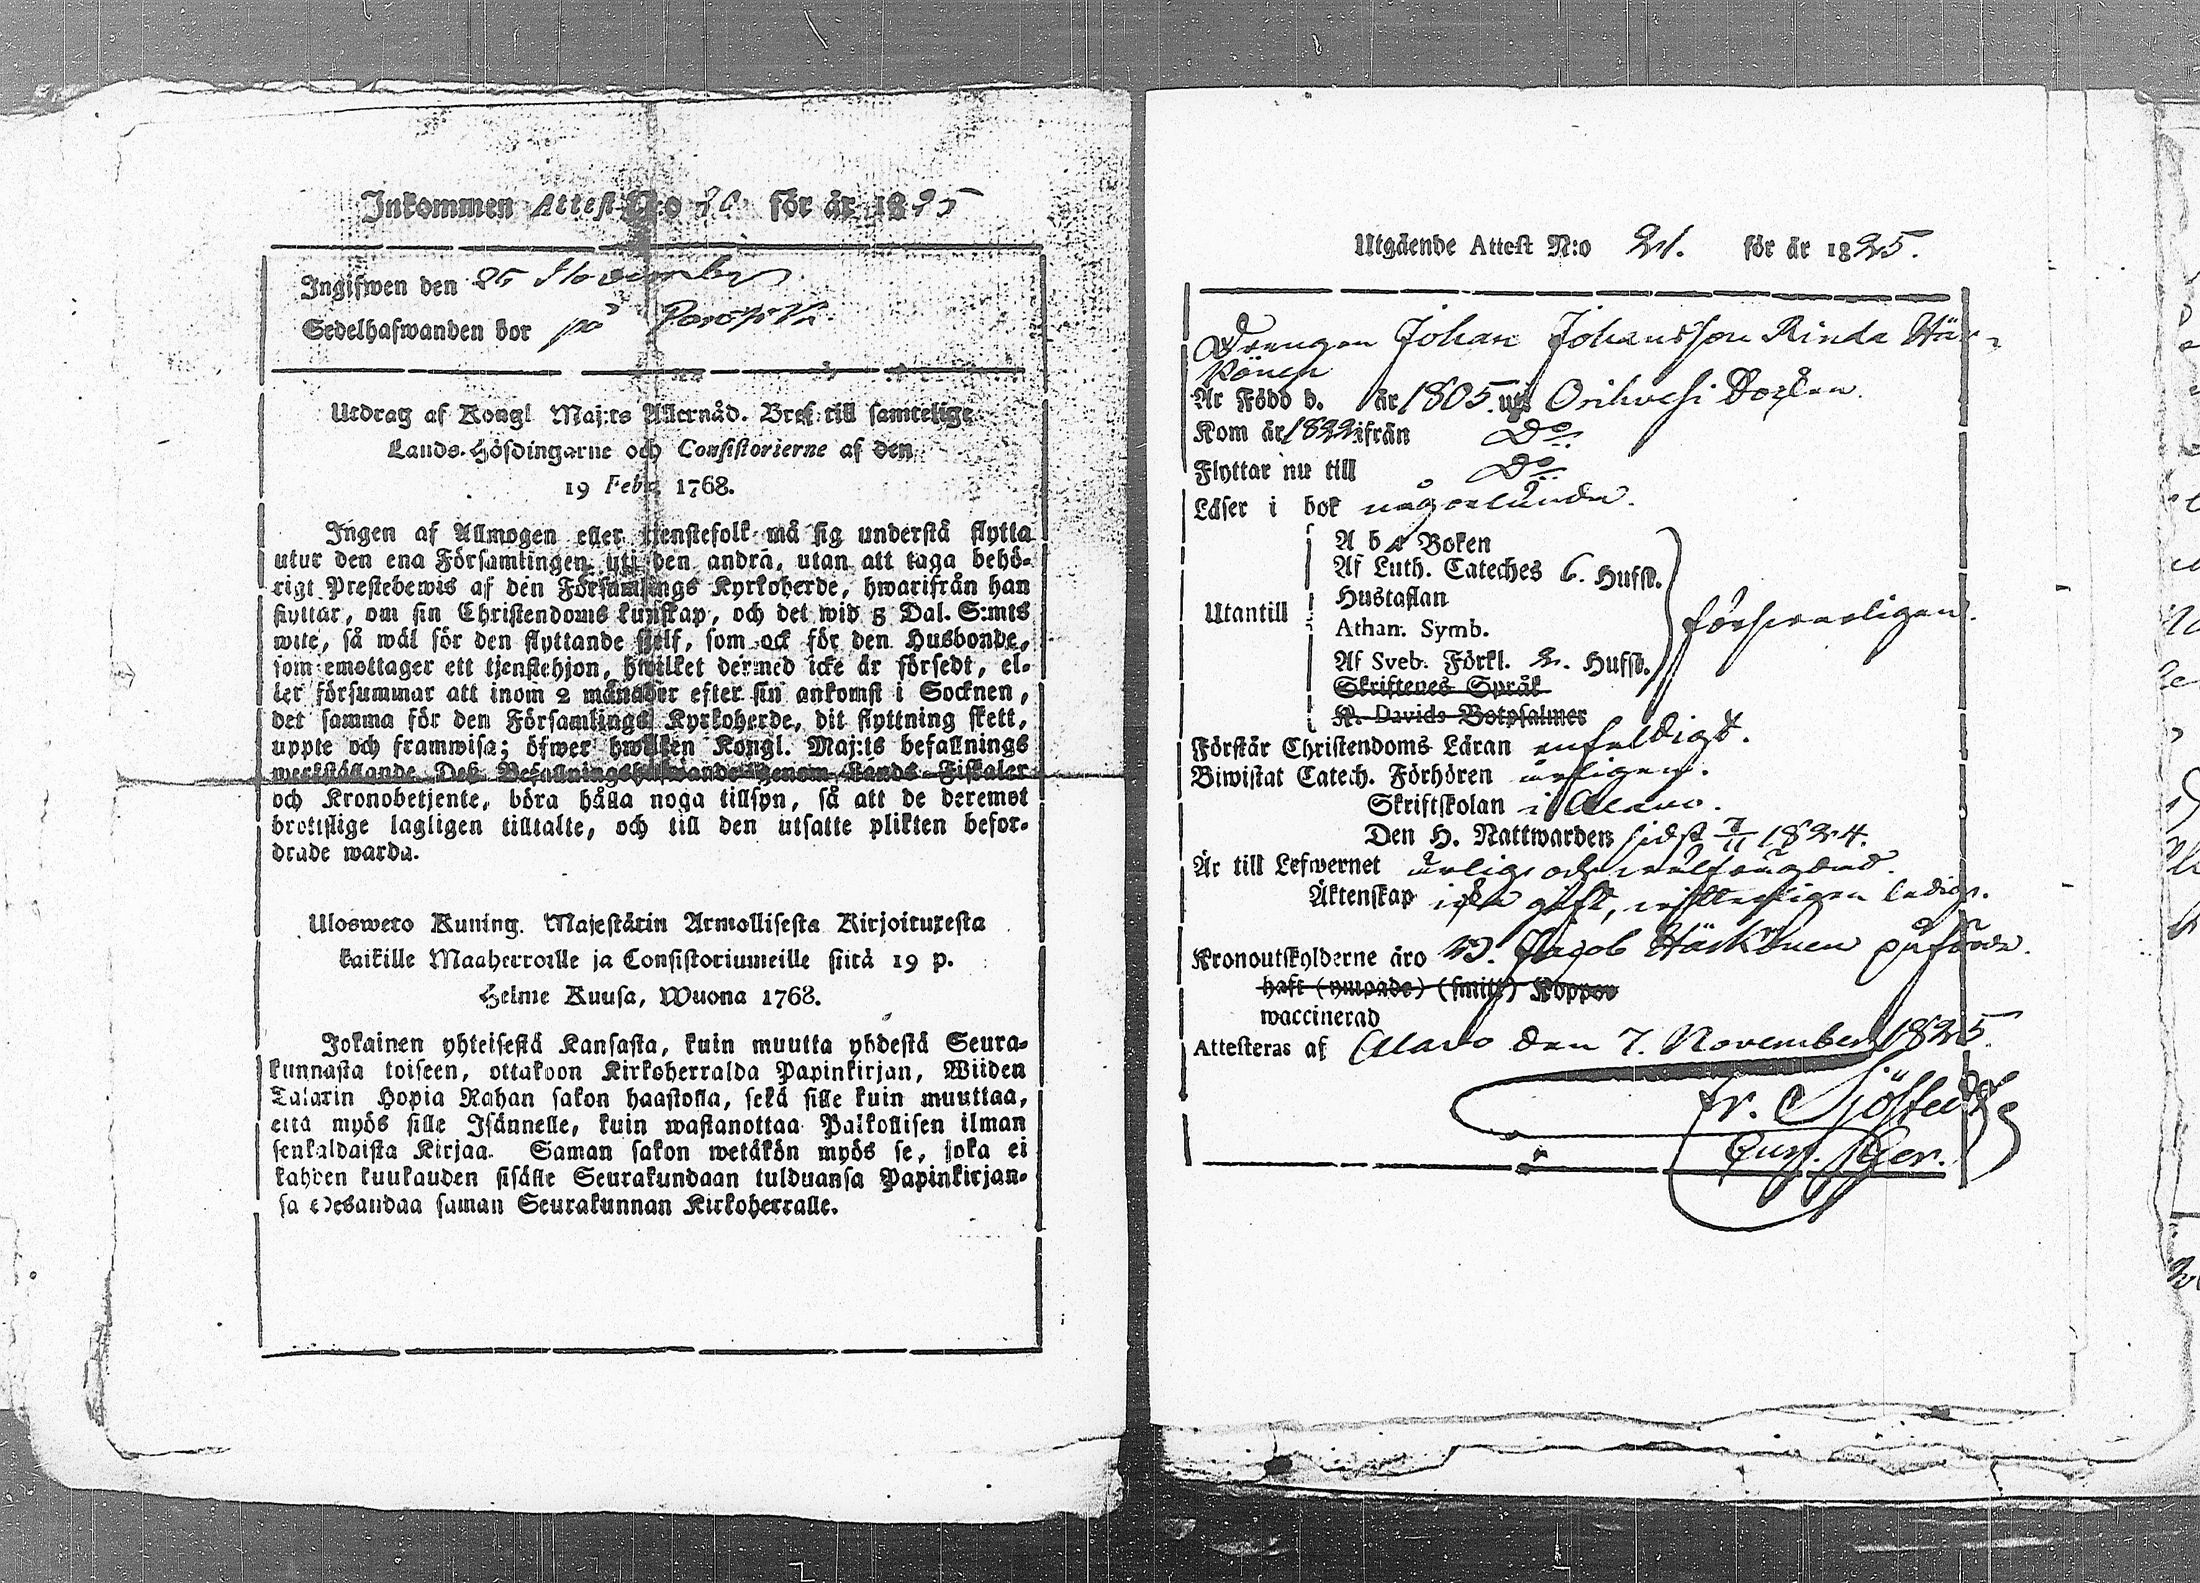 Inkommen Attest N:o 20 för år 1825
Ingifwen den 26 November
Sedelhafwanden bor på
Utdrag af Kongl Maj:ts Allernåd. Bref till samtelige
Lands-Höfdingarne och Consistorierne af den
19 Febr. 1768.
Ingen af Allmogen eller tjenstefolk må sig understå flytta
utur den ena Församlingen uti den andra, utan att taga behö-
rigt Prestebewis af den Församlings Kyrkoherde, hwarifrån han
flyttar, om sin Christendoms kunskap, och det wid 5 Dal. S:mts
wite, så wäl för den flyttande sjelf, som ock för den Husbonde,
som emottager ett tjenstehjon, hwilket dermed icke är försedt, el-
ler försummar att inom 2 månader efter sin ankomst i Socknen,
det samma för den Församlings Kyrkoherde, dit flyttning skett,
uppte och framwisa; öfwer hwilken Kongl. Maj:ts befallnings
werkställande Deß Befallningshafwande genom Lands-Fiskaler
och Kronobetjente, böra hålla noga tillsyn, så att de deremot
brottslige lagligen tilltalte, och till den utsatte plikten befor-
drade warda.
Ulosweto Kuning. Majestätin Armollisesta Kirjoituxesta
kaikille Maaherroille ja Consistoriumeille siitä 19 p.
Helme Kuusa, Wuona 1768.
Jokainen yhteisestä Kansasta, kuin muutta yhdestä Seura-
kunnasta toiseen, ottakoon Kirkoherralda Papinkirjan, Wiiden
Talarin Hopia Rahan sakon haastolla, sekä sille kuin muuttaa,
että myös sille Isännelle, kuin wastanottaa Palkollisen ilman
senkaldaista Kirjaa. Saman sakon wetäkön myös se, joka ei
kahden kuukauden sisälle Seurakundaan tulduansa Papinkirjan-
sa edesandaa saman Seurakunnan Kirkoherralle.
Utgående Attest N:o 21. för år 1825.
Drengen Johan Johansson Rinda Här-
könen
Är Född d. år 1805. uti Orihvesi Socken
Kom år 1822 ifrån Do
Flyttar nu till Do
Läser i bok någorlunda.
A b c Boken
Af Luth. Cateches 6. Hufst.
Hustaflan
Utantill
Athan. Symb.
försvarligen.
Af Sveb. Förkl. 2. Hufst.
Skriftenes Språk
K. Davids Botpsalmer
Förstår Christendoms Läran enfaldigt.
Biwistat Catech. Förhören årligen.
Skriftskolan i Alavo.
Den H. Nattwarden sidst 7/11 1824.
Är till Lefwernet ärlig och wälfrägdad.
Äktenskap icke gift, witterligen ledig.
Kronoutskylderne äro Jacob Härkönen påförde.
haft (ympade) (smitt) Koppor
waccinerad
Attesteras af Alavo den 7. November 1825.
Fr. Sjöstedt